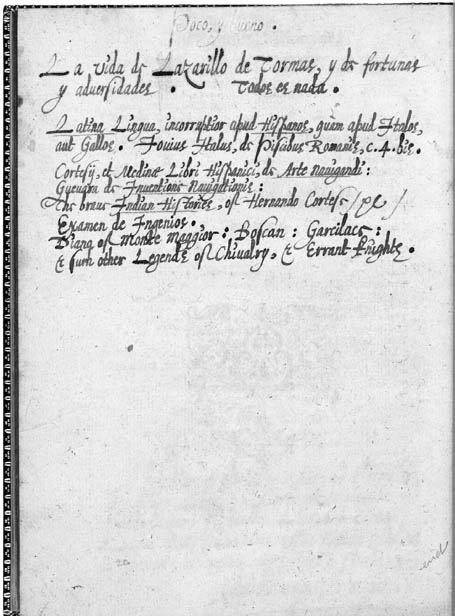 Poco, y bueno.
La vida de Lazarillo de Tormes, y de fortunas
y adversidades. Todos es nada.
Latina Lingua, incorruptior apud Hispanos, quàm apud Italos,
aut Gallos. Jovius Italus, de Piscibus Romanis, c. 4. bis.
Cortesij, et Medinæ Libri Hispanici, de Arte Navigandi:
Guevara de Inventione Navigationis:
The brave Indian Histories, of Hernando Cortese /
Examen de Ingenios.
Diana of Monte Maggior: Boscan: Garcilass:
& sum other Legends of Chivalry, & Errant Knights.